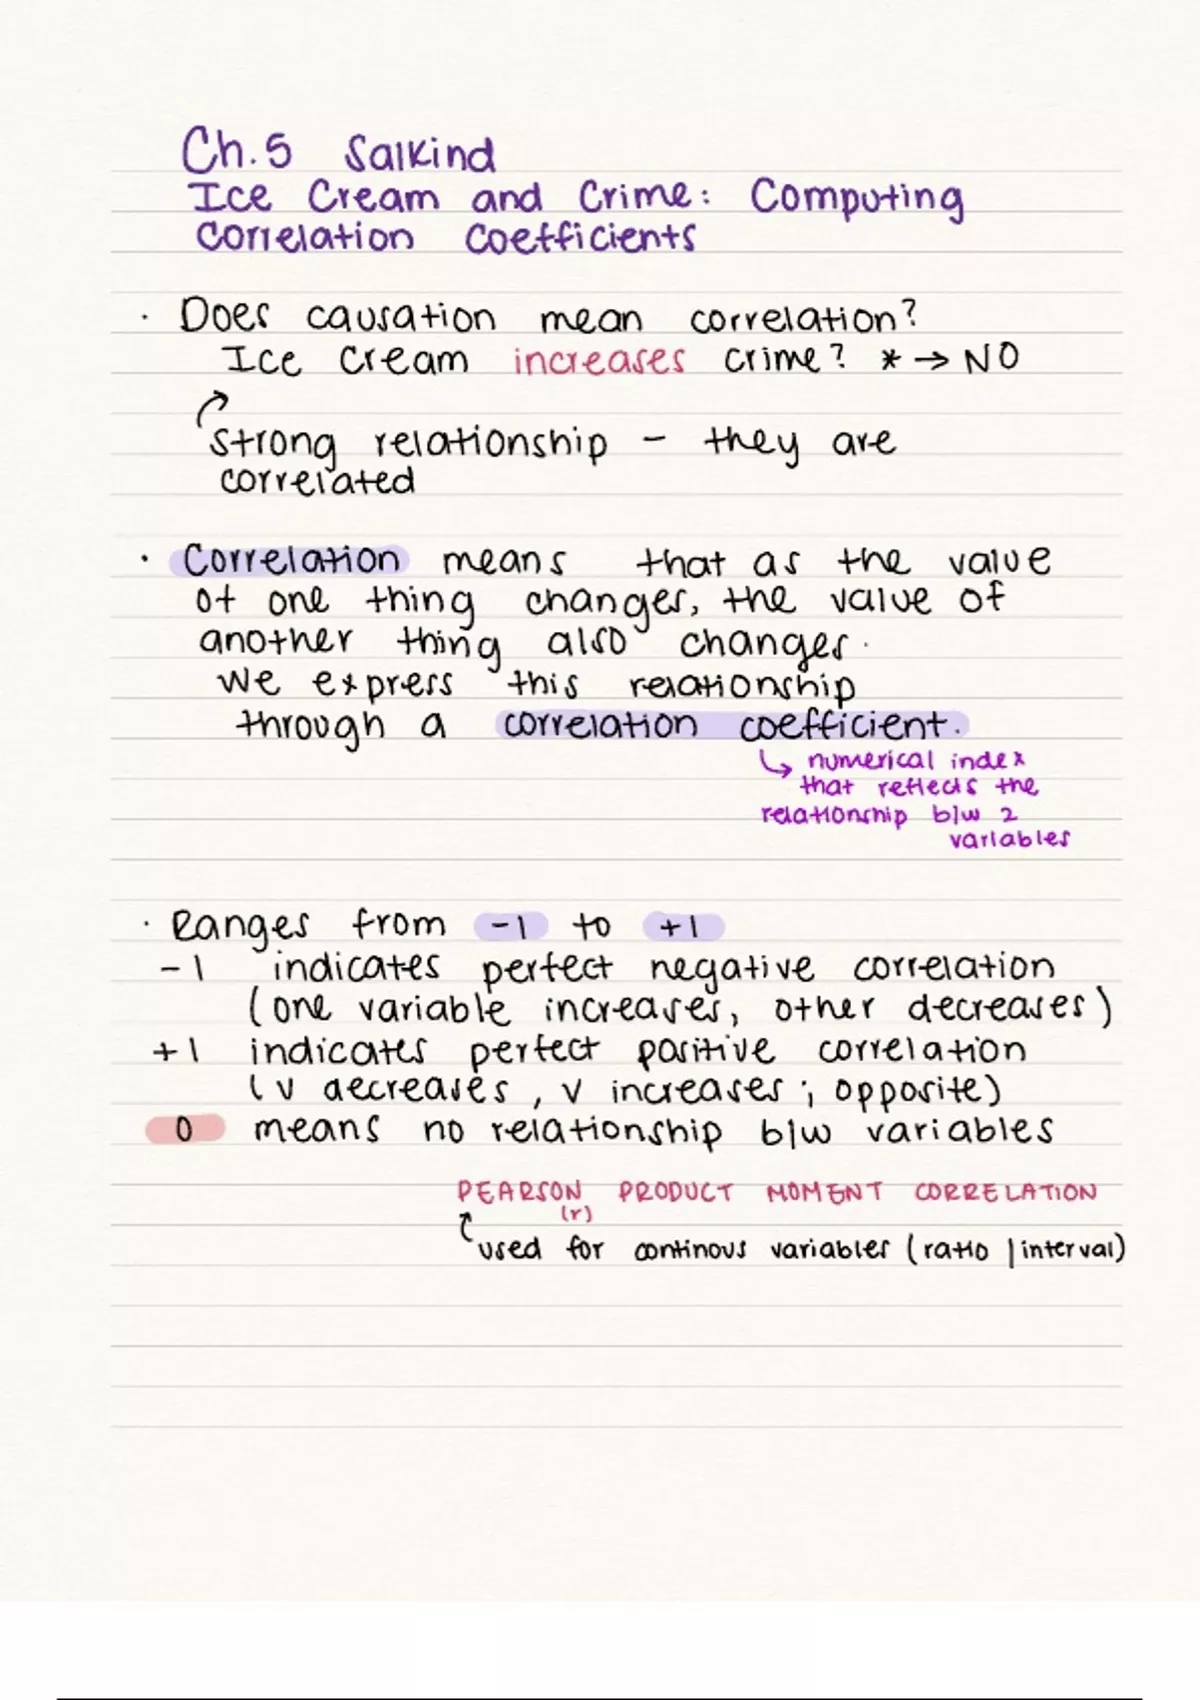 Ch.5 Salkind
Ice Cream and Crime: Computing
Correlation Coefficients
· Does causation mean correlation?
Ice Cream increases crime? * → NO
strong relationship - they are
correlated
· Correlation means that as the value
of one thing changes, the value of
another thing also changes.
We express this relationship
through a correlation coefficient.
↳ numerical index
that reflects the
relationship b/w 2
variables
· Ranges from -1 to +1
-1 indicates perfect negative correlation
(one variable increases, other decreases)
+1 indicates perfect positive correlation
(v decreases, v increases; opposite)
0 means no relationship b/w variables
PEARSON PRODUCT MOMENT CORRELATION
(r)
used for continous variables (ratio | interval)